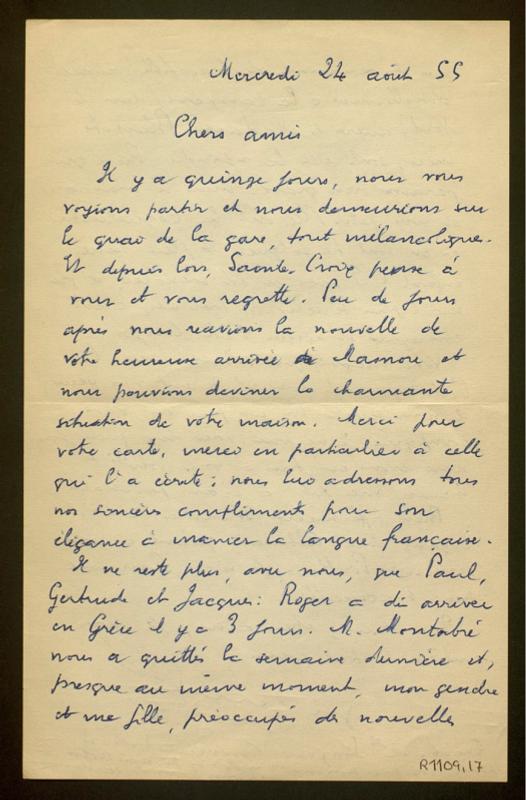 Mercredi 24 août 55
Chers amis
Il y a quinze jours, nous vous
voyions partir et nous demeurions sur
le quai de la gare, tout mélancoliques.
Et depuis lors, Sainte-Croix pense à
vous et vous regrette. Peu de jours
après nous recevions la nouvelle de
votre heureuse arrivée à Mamou et
nous pouvions deviner la charmante
situation de votre maison. Merci pour
votre carte, merci en particulier à celle
qui l'a écrite : nous lui adressons tous
nos sincères compliments pour son
élégance à manier la langue française.
Il ne reste plus, avec nous, que Paul,
Gertrude et Jacques : Roger a dû arriver
en Grèce il y a 3 jours. M.
nous a quittés la semaine dernière et,
presque au même moment, mon gendre
et ma fille, préoccupés de nouvelles
R1109,17